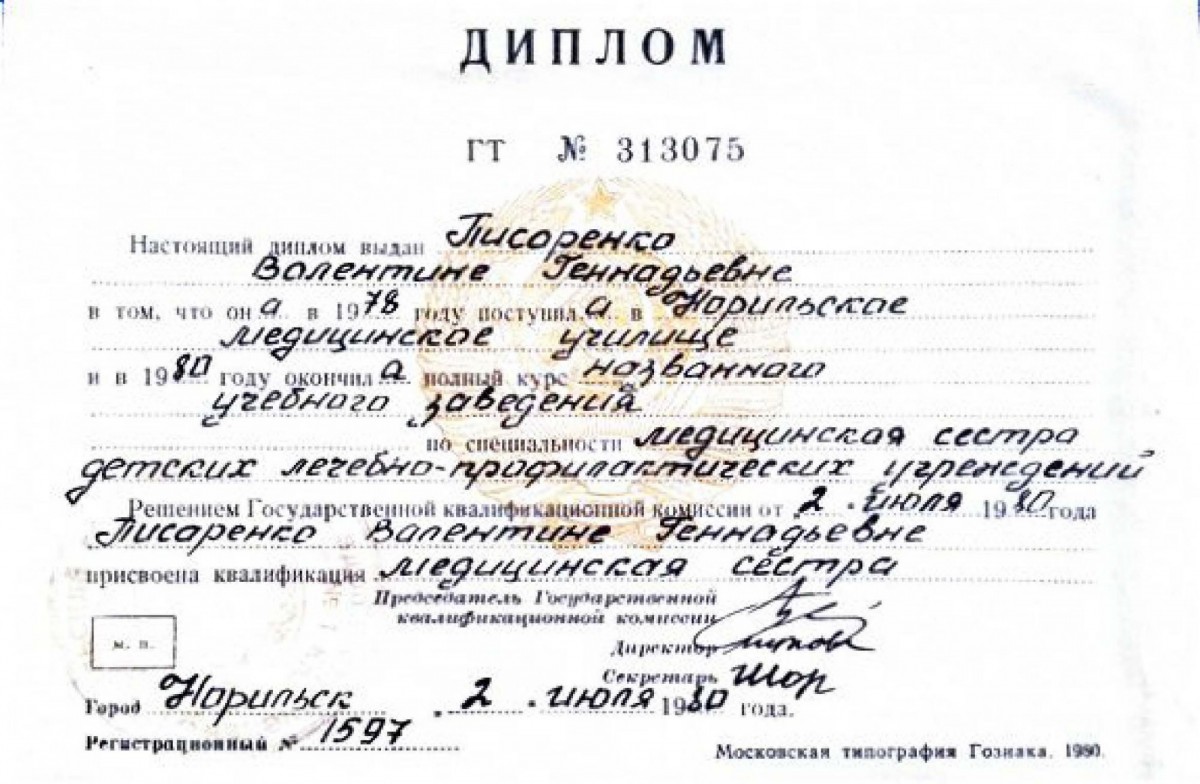 ДИПЛОМ
ГТ № 313075
Настоящий диплом выдан Писаренко
Валентине Геннадьевне
в том, что она в 1978 году поступила в Норильское
медицинское училище
и в 1980 году окончила полный курс названного
учебного заведения
по специальности медицинская сестра
детских лечебно-профилактических учреждений
Решением Государственной квалификационной комиссии от 2 июля 1980 года
Писаренко Валентине Геннадьевне
присвоена квалификация медицинская сестра
Председатель Государственной
квалификационной комиссии
м. п.
Директор
Секретарь Шор
Город Норильск 2 июля 1980 года.
Регистрационный № 1597
Московская типография Гознака. 1980.